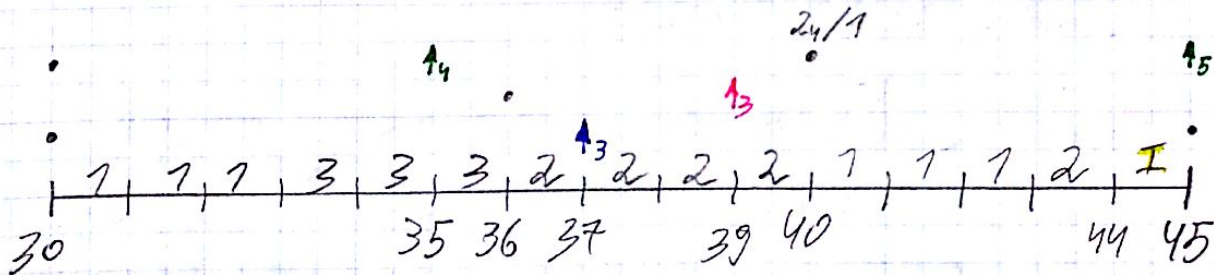 24/1
4
5
3
3
1 1 1 3 3 3 2 2 2 2 1 1 1 2 I
30 35 36 37 39 40 44 45